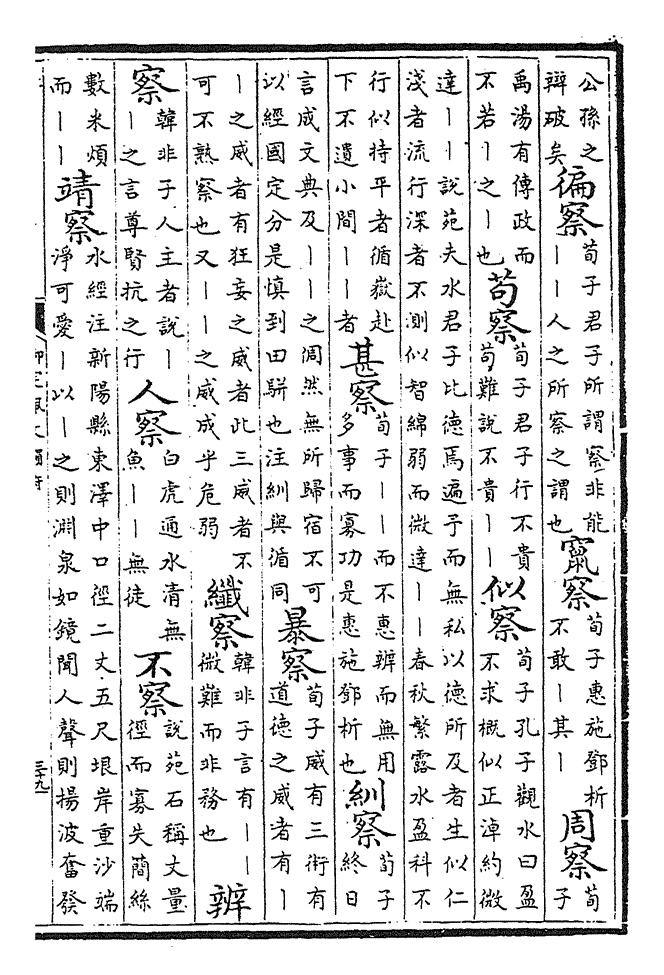 公孫之辯破矣徧察荀子君子所謂察非能｜｜人之所察之謂也竄察荀子惠施鄧析不敢｜其｜周察荀子
禹湯有傳政而不若｜之｜也苟察荀子君子行不貴苟難說不貴｜｜似察荀子孔子觀水曰盈不求概似正淖約微
達｜｜說苑夫水君子比德焉遍予而無私以德所及者生似仁淺者流行深者不測似智綿弱而微達｜｜春秋繁露水盈科不
行似持平者循嶽赴下不遺小間｜｜者甚察荀子｜｜而不惠辨而無用多事而寡功是惠施鄧析也紃察荀子終日
言成文典及｜｜之倜然無所歸宿不可以經國定分是慎到田駢也注紃與循同暴察荀子威有三術有道德之威者有｜
｜之威者有狂妄之威者此三威者不可不熟察也又｜｜之威成乎危弱纖察韓非子言有｜｜微難而非務也辨
察韓非子人主者說｜｜之言尊賢抗之行人察白虎通水清無魚｜｜無徒不察說苑石稱丈量徑而寡失簡絲
數米煩而｜｜靖察水經注新陽縣東澤中口徑二丈五尺垠岸重沙端淨可愛｜以｜之則淵泉如鏡聞人聲則揚波奮發